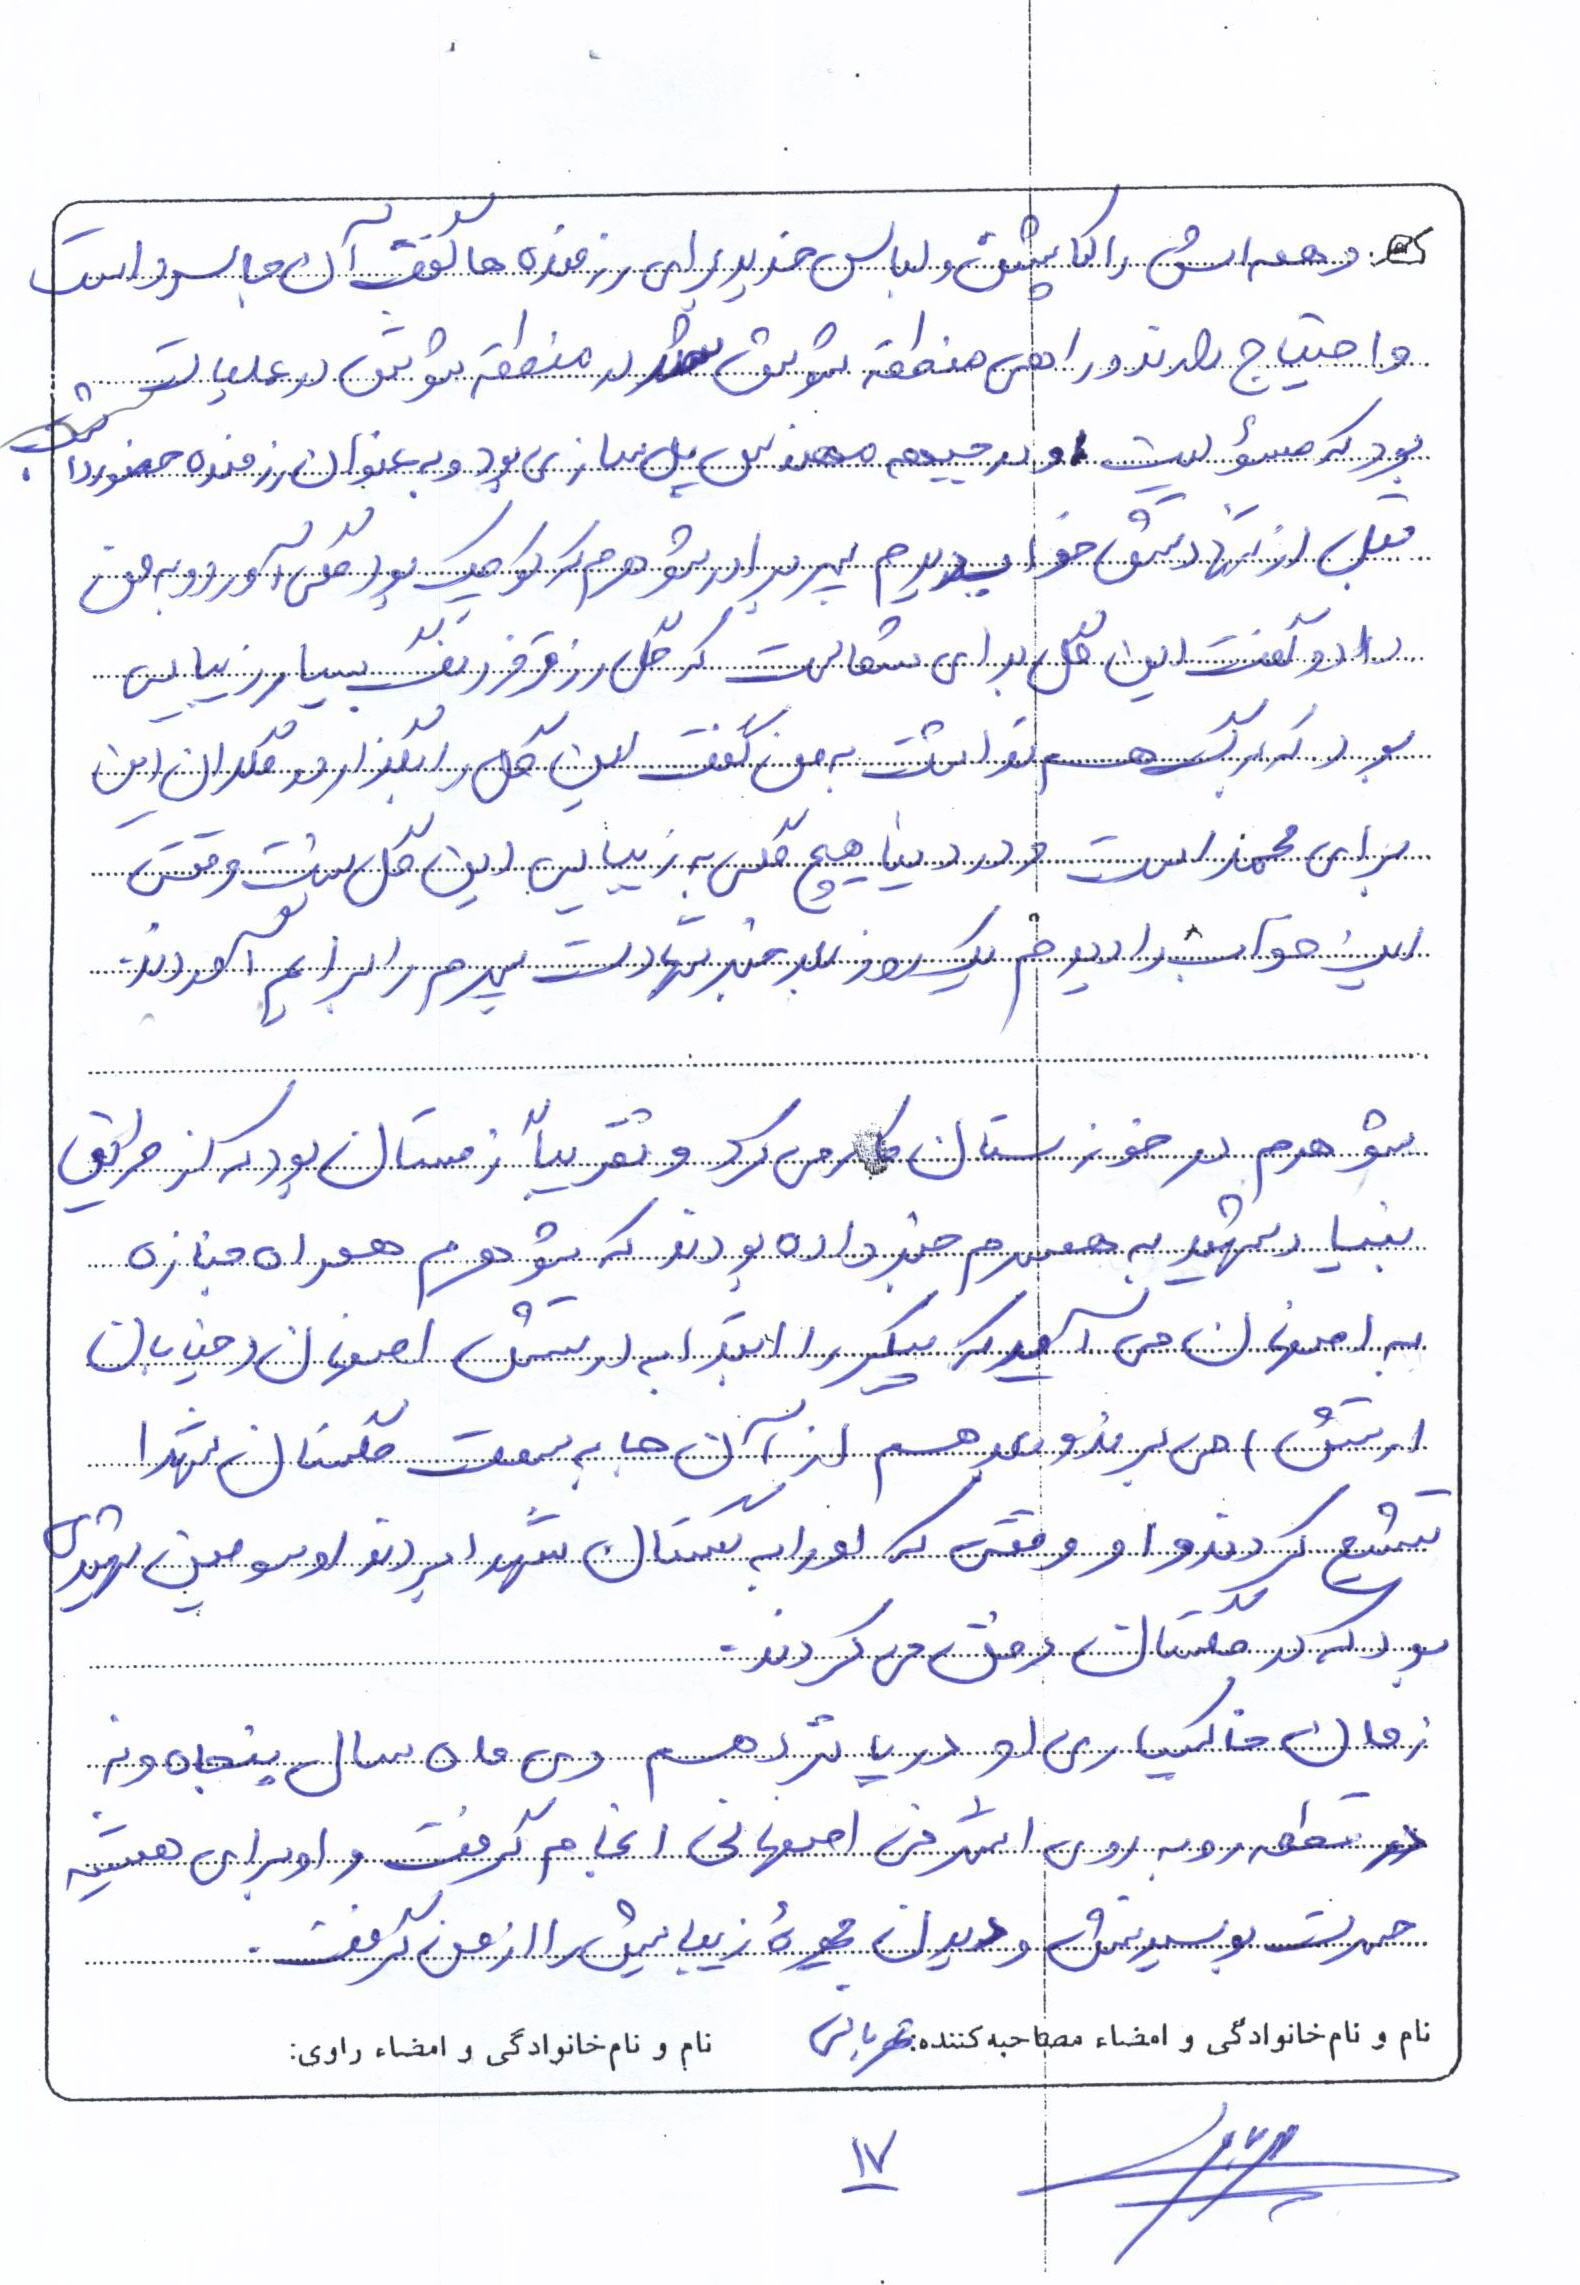 و همه اش را کاپشن و لباس خرید برای رزمنده ها گفت آن جا سرد است
و احتیاج دارند و راهی منطقه شوش شد در منطقه شوش در عملیات
بود که مسؤلیت او در جبهه مهندس پل سازی بود و به عنوان رزمنده حضور داشت
قبل از شهادتش خواب دیدم پسر برادر شوهرم که کوچک بود گلی آورد و به من
داد و گفت این گل برای شماست که گل رز قرمز رنگ بسیار زیبایی
بود که برگ هم نداشت به من گفت این گل را بگذار در گلدان این
برای محمد است و در دنیا هیچ گلی به زیبایی این گل نیست وقتی
این خواب را دیدم یک روز بعد خبر شهادت پسرم را برایم آوردند.
شوهرم در خوزستان کار می کرد و تقریباً زمستان بود که از طریق
بنیاد شهید به همسرم خبر داده بودند که شوهرم همراه جنازه
به اصفهان می آید که پیکر را ابتدا به ارتش اصفهان (خیابان
ارتش) می برند و بعد هم از آن جا به سمت گلستان شهدا
تشییع کردند و او وقتی که او را به گلستان شهدا بردند او سومین شهیدی
بود که در گلستان دفن می کردند.
زمان خاکسپاری او در پانزدهم دی ماه سال پنجاه و نه
در قطعه روبه روی اشرفی اصفهانی انجام گرفت و او برای همیشه
حسرت بوسیدنش و دیدن چهرهٔ زیبایش را از من گرفت.
نام و نام خانوادگی و امضاء مصاحبه کننده:
نام و نام خانوادگی و امضاء راوی:
۱۷